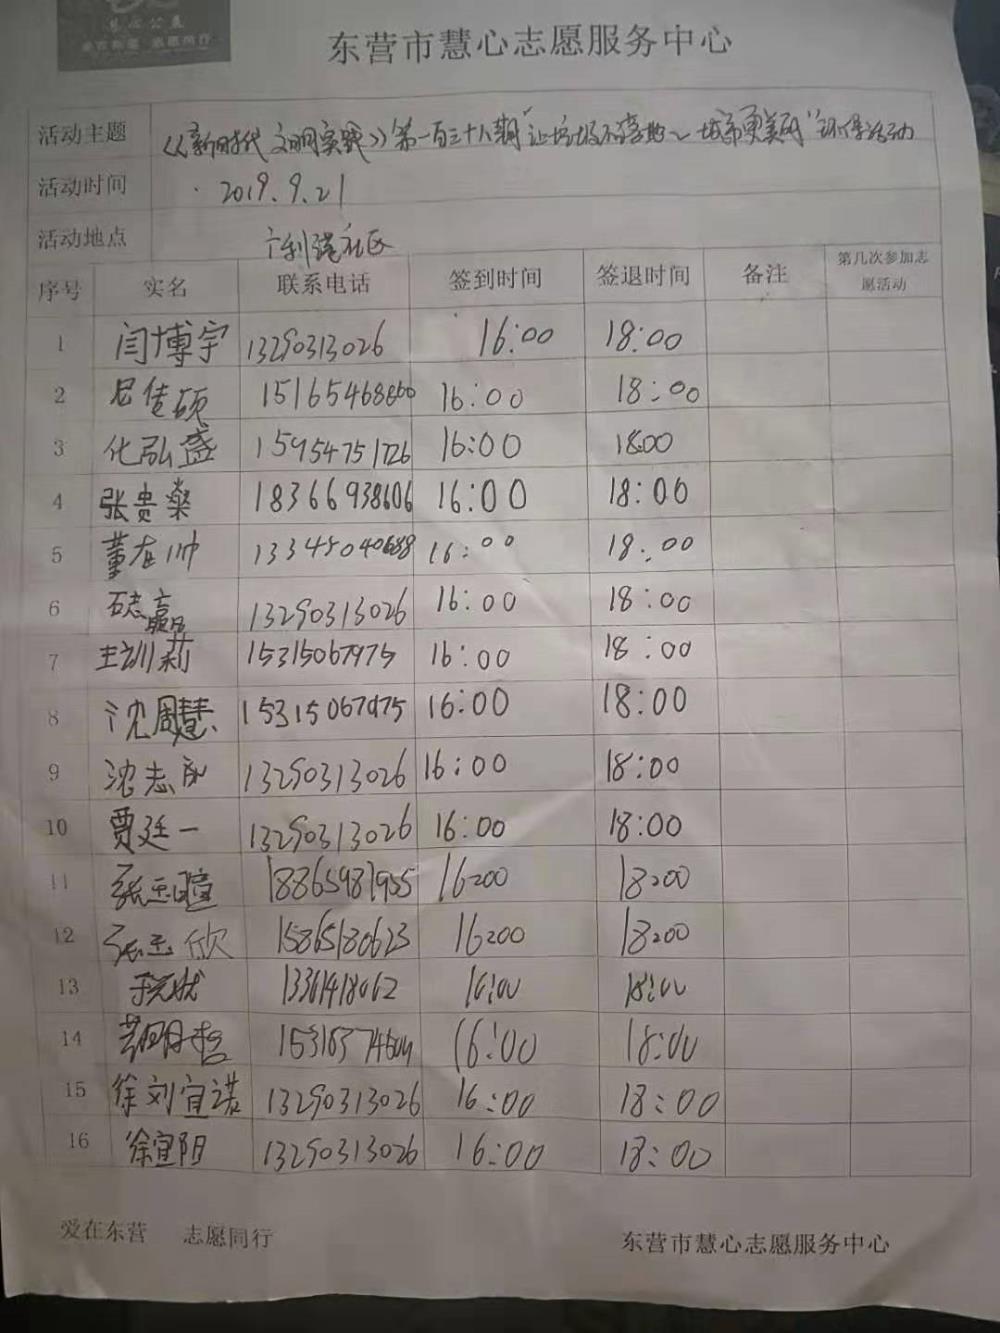 慧心公益
爱在东营 志愿同行
东营市慧心志愿服务中心
活动主题 《新时代文明实践》第一百三十八期"让垃圾不落地~城市更美丽"环保活动
活动时间 2019.9.21
活动地点 广利港社区
序号 实名 联系电话 签到时间 签退时间 备注 第几次参加志愿活动
1 闫博宇 13290313026 16:00 18:00
2 佳硕 15165468800 16:00 18:00
3 化弘盛 15954751726 16:00 18:00
4 张贵燊 18366938606 16:00 18:00
5 董在帅 16:00 18:00
6 志赢 13290313026 16:00 18:00
7 王训莉 15315067975 16:00 18:00
8 沈周慧 15315067975 16:00 18:00
9 沈志 13290313026 16:00 18:00
10 贾廷一 13290313026 16:00 18:00
11 张玉暄 18865981955 16:00 18:00
12 张玉欣 15865180623 16:00 18:00
13 13361418062 16:00 18:00
14 16:00 18:00
15 徐刘宜诺 13290313026 16:00 18:00
16 徐宜阳 13290313026 16:00 18:00
爱在东营 志愿同行 东营市慧心志愿服务中心